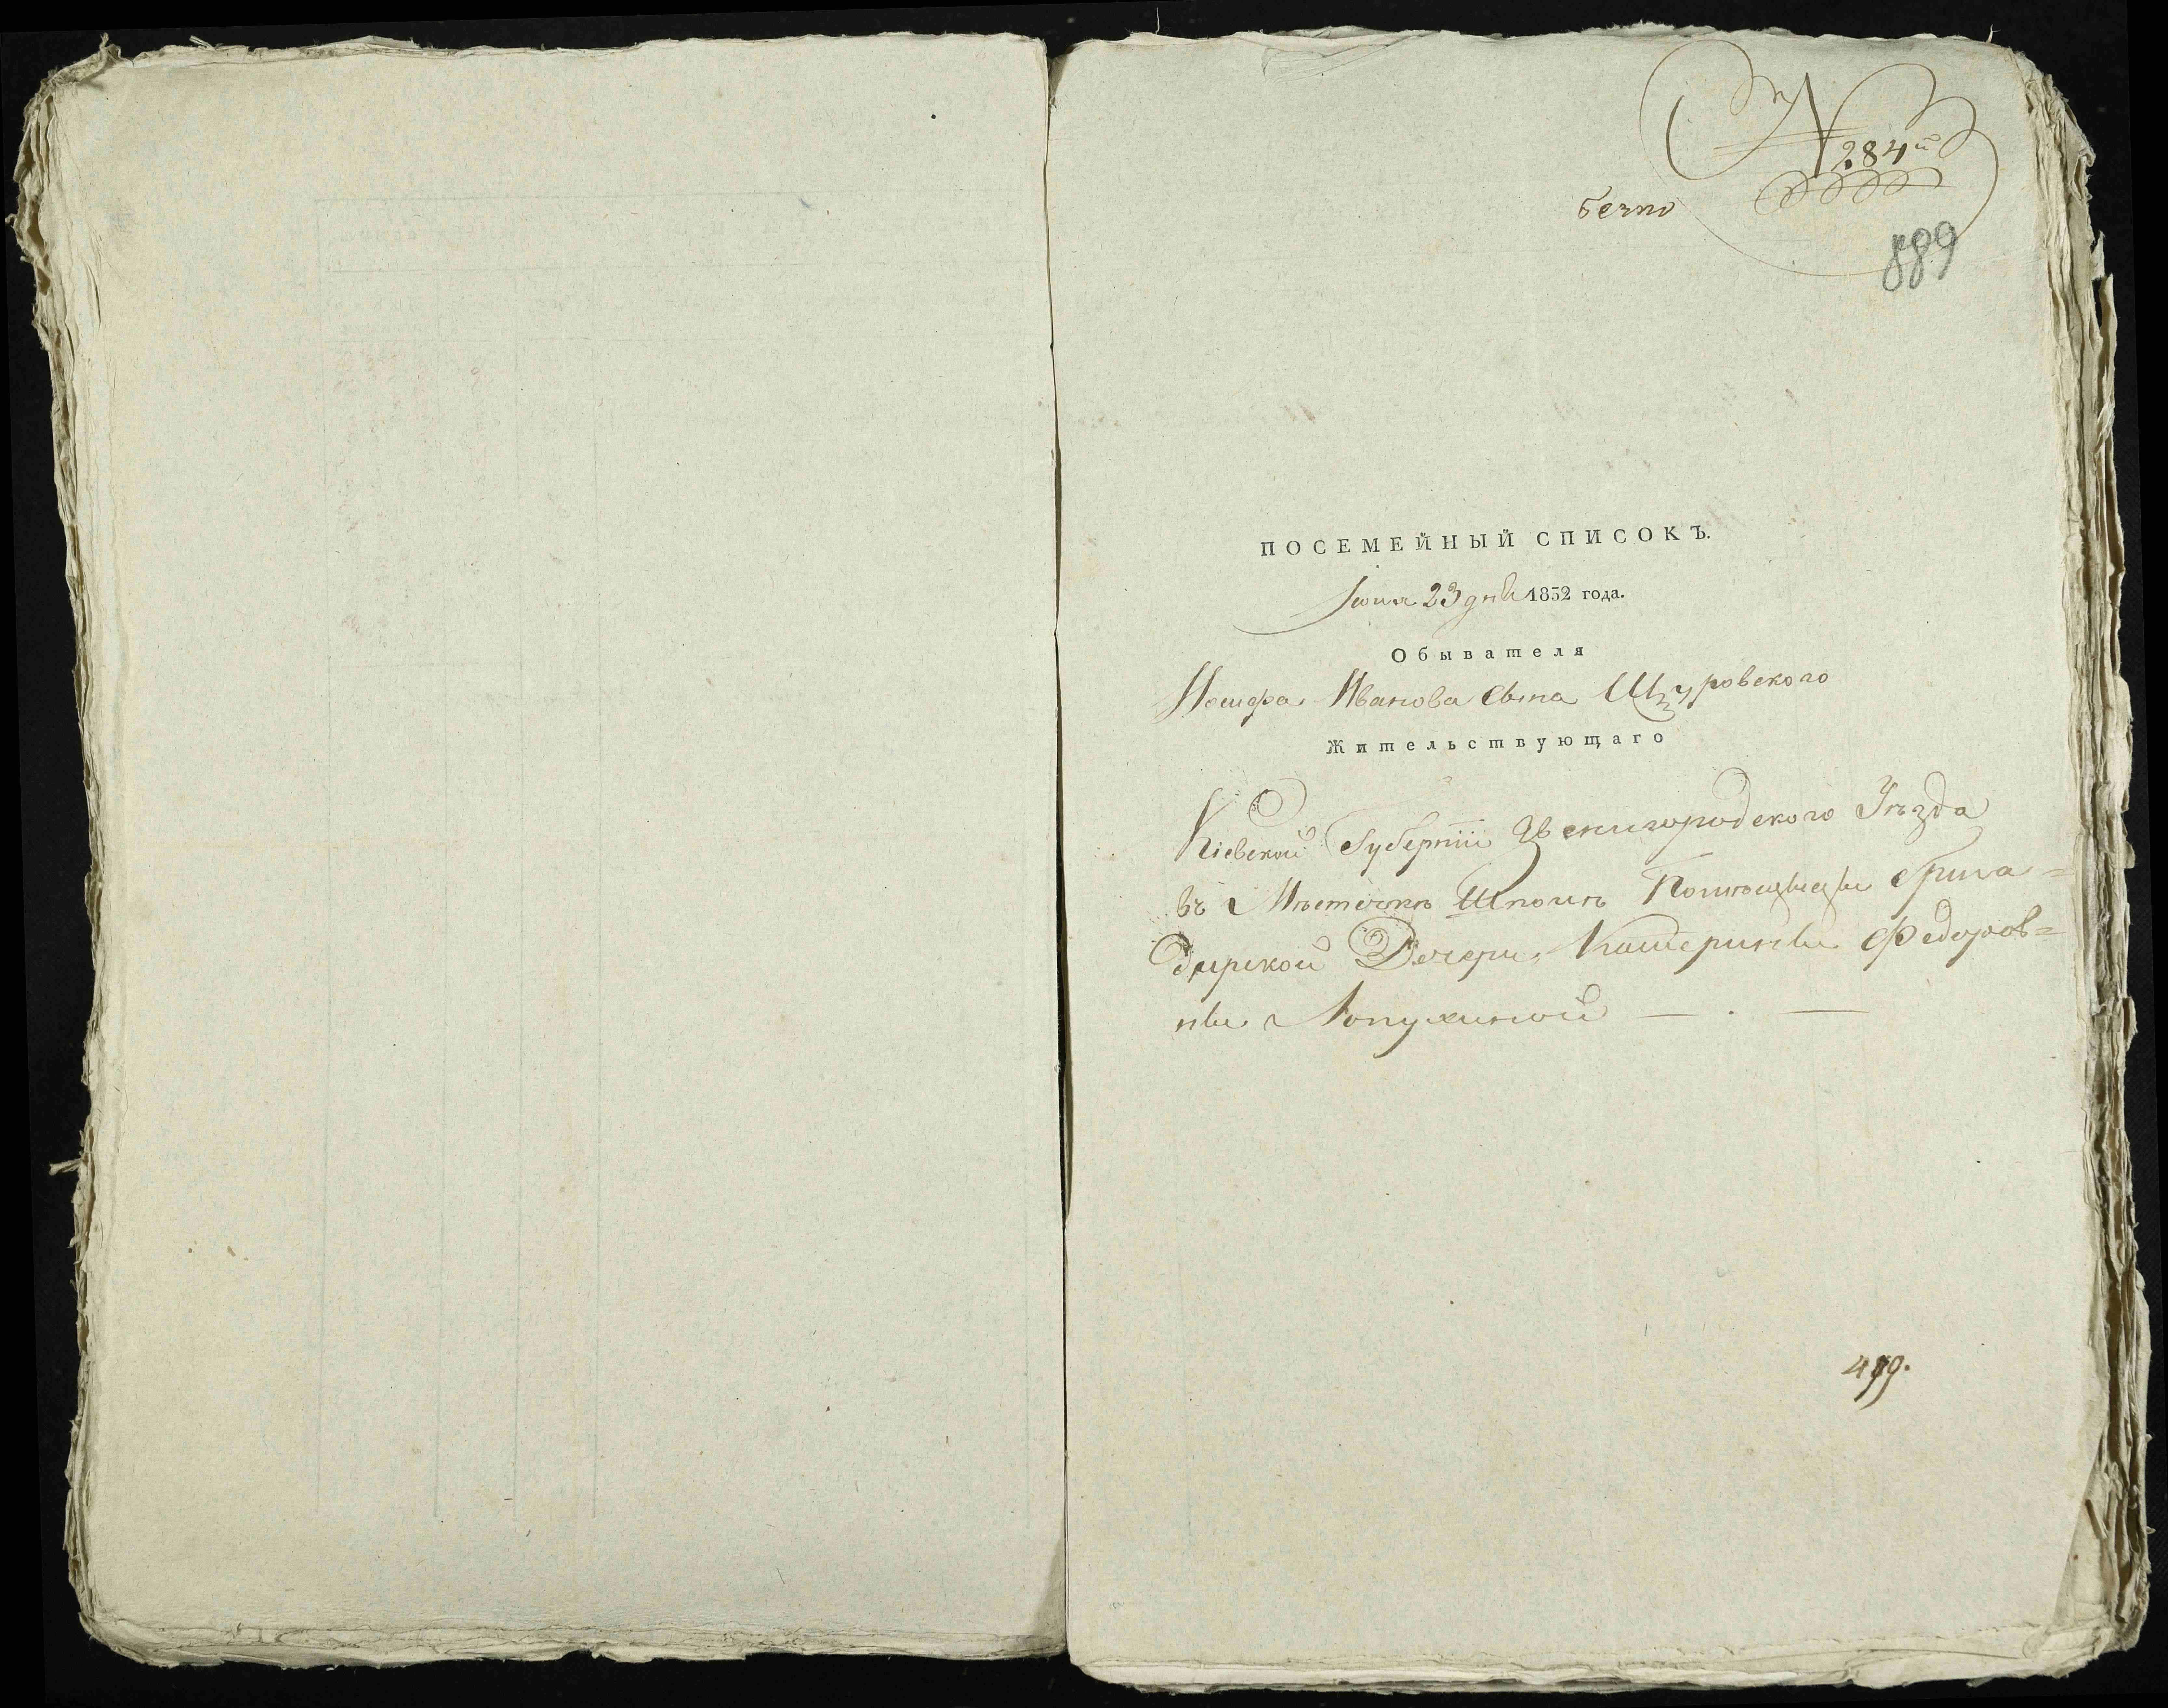 N 284й
889
ПОСЕМЕЙНЫЙ СПИСОКЪ.
Іюня 23 дня 1832 года.
Обывателя
Иосифа Иванова сына Щуровского
Жительствующаго
Кіевской Губерніи Звенигородского Уѣзда
въ Мѣстечкѣ Шполѣ Помѣщицы Брига=
дирской Дочери, Катерины Федоров=
ны Лопухиной — . —